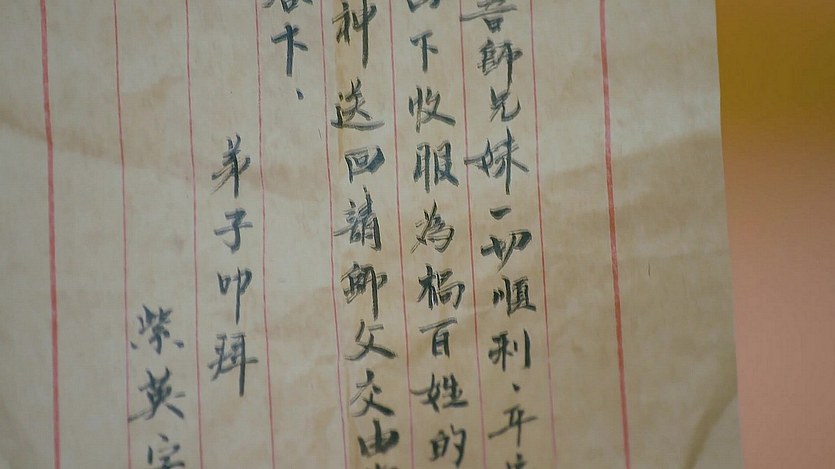 師兄妹一切順利、年
下收服為禍百姓的
神送回請師父交由
卡、
弟子叩拜
紫英字